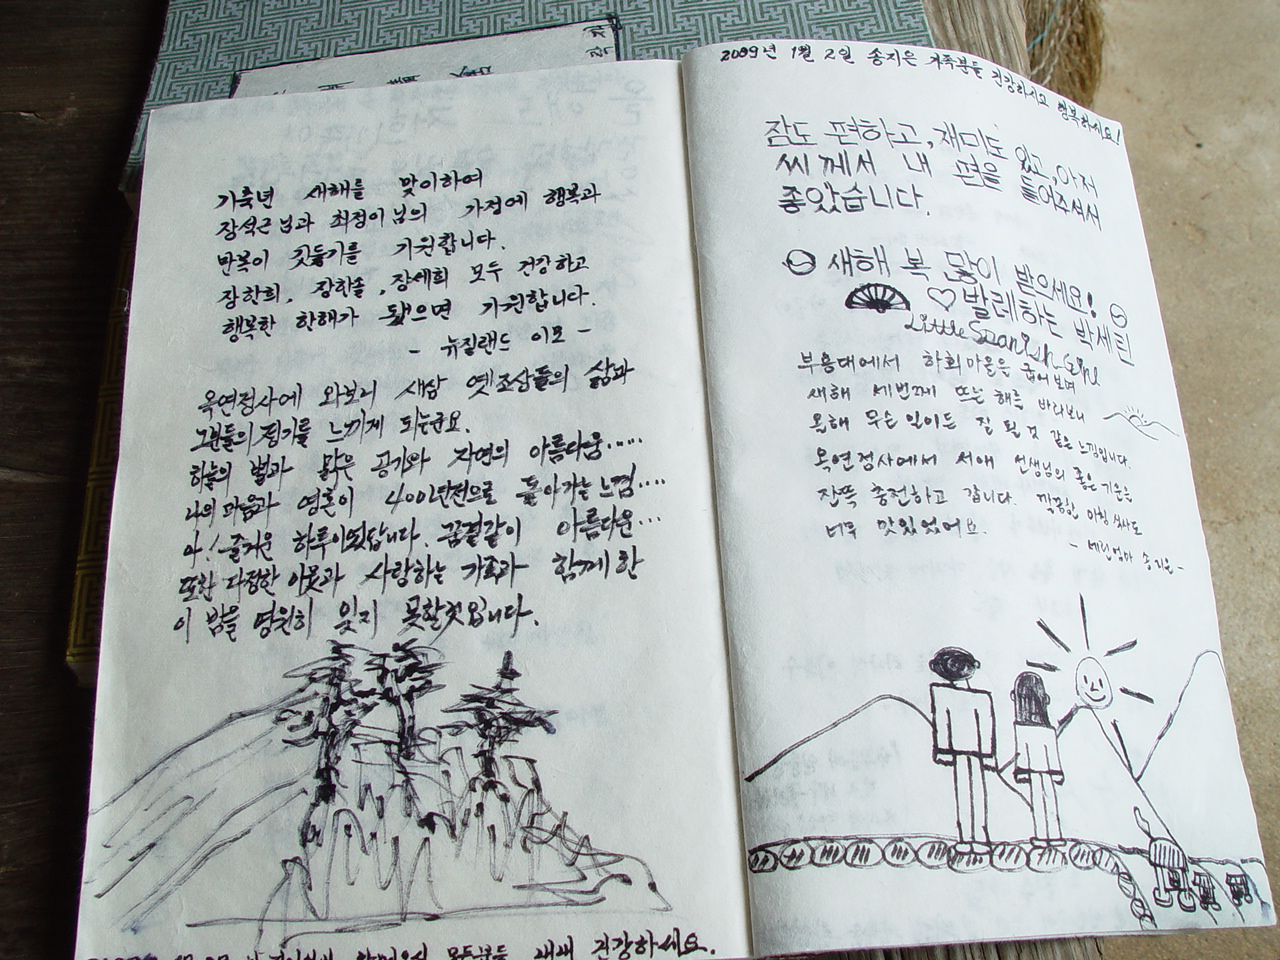 기축년 새해를 맞이하여
장석근님과 최정이님의 가정에 행복과
만복이 깃들기를 기원합니다.
장한희, 장한솔, 장세희 모두 건강하고
행복한 한해가 됐으면 기원합니다.
- 뉴질랜드 이모 -
옥연정사에 와보니 새삼 옛조상들의 삶과
그분들의 정기를 느끼게 되는군요.
하늘의 별과 맑은 공기와 자연의 아름다움.....
나의 마음과 영혼이 400년전으로 돌아가는 느낌....
아! 즐거운 하루이었답니다. 꿈결같이 아름다운...
또한 다정한 이웃과 사랑하는 가족과 함께 한
이 밤을 영원히 잊지 못할것입니다.
모두분들 내내 건강하세요.
2009년 1월 2일 송지은 가족분들 건강하시고 행복하세요!
잠도 편하고, 재미도 있고, 아저
씨께서 내 편을 들어주셔서
좋았습니다.
새해 복 많이 받으세요!
♡발레하는 박세린
Little
부용대에서 하회마을을 굽어보며
새해 세번째 뜨는 해를 바라보니
올해 무슨 일이든 잘 될 것 같은 느낌입니다.
옥연정사에서 서애 선생님의 좋은 기운을
잔뜩 충전하고 갑니다. 깔끔한 아침 식사도
너무 맛있었어요.
- 세린엄마 송지은 -